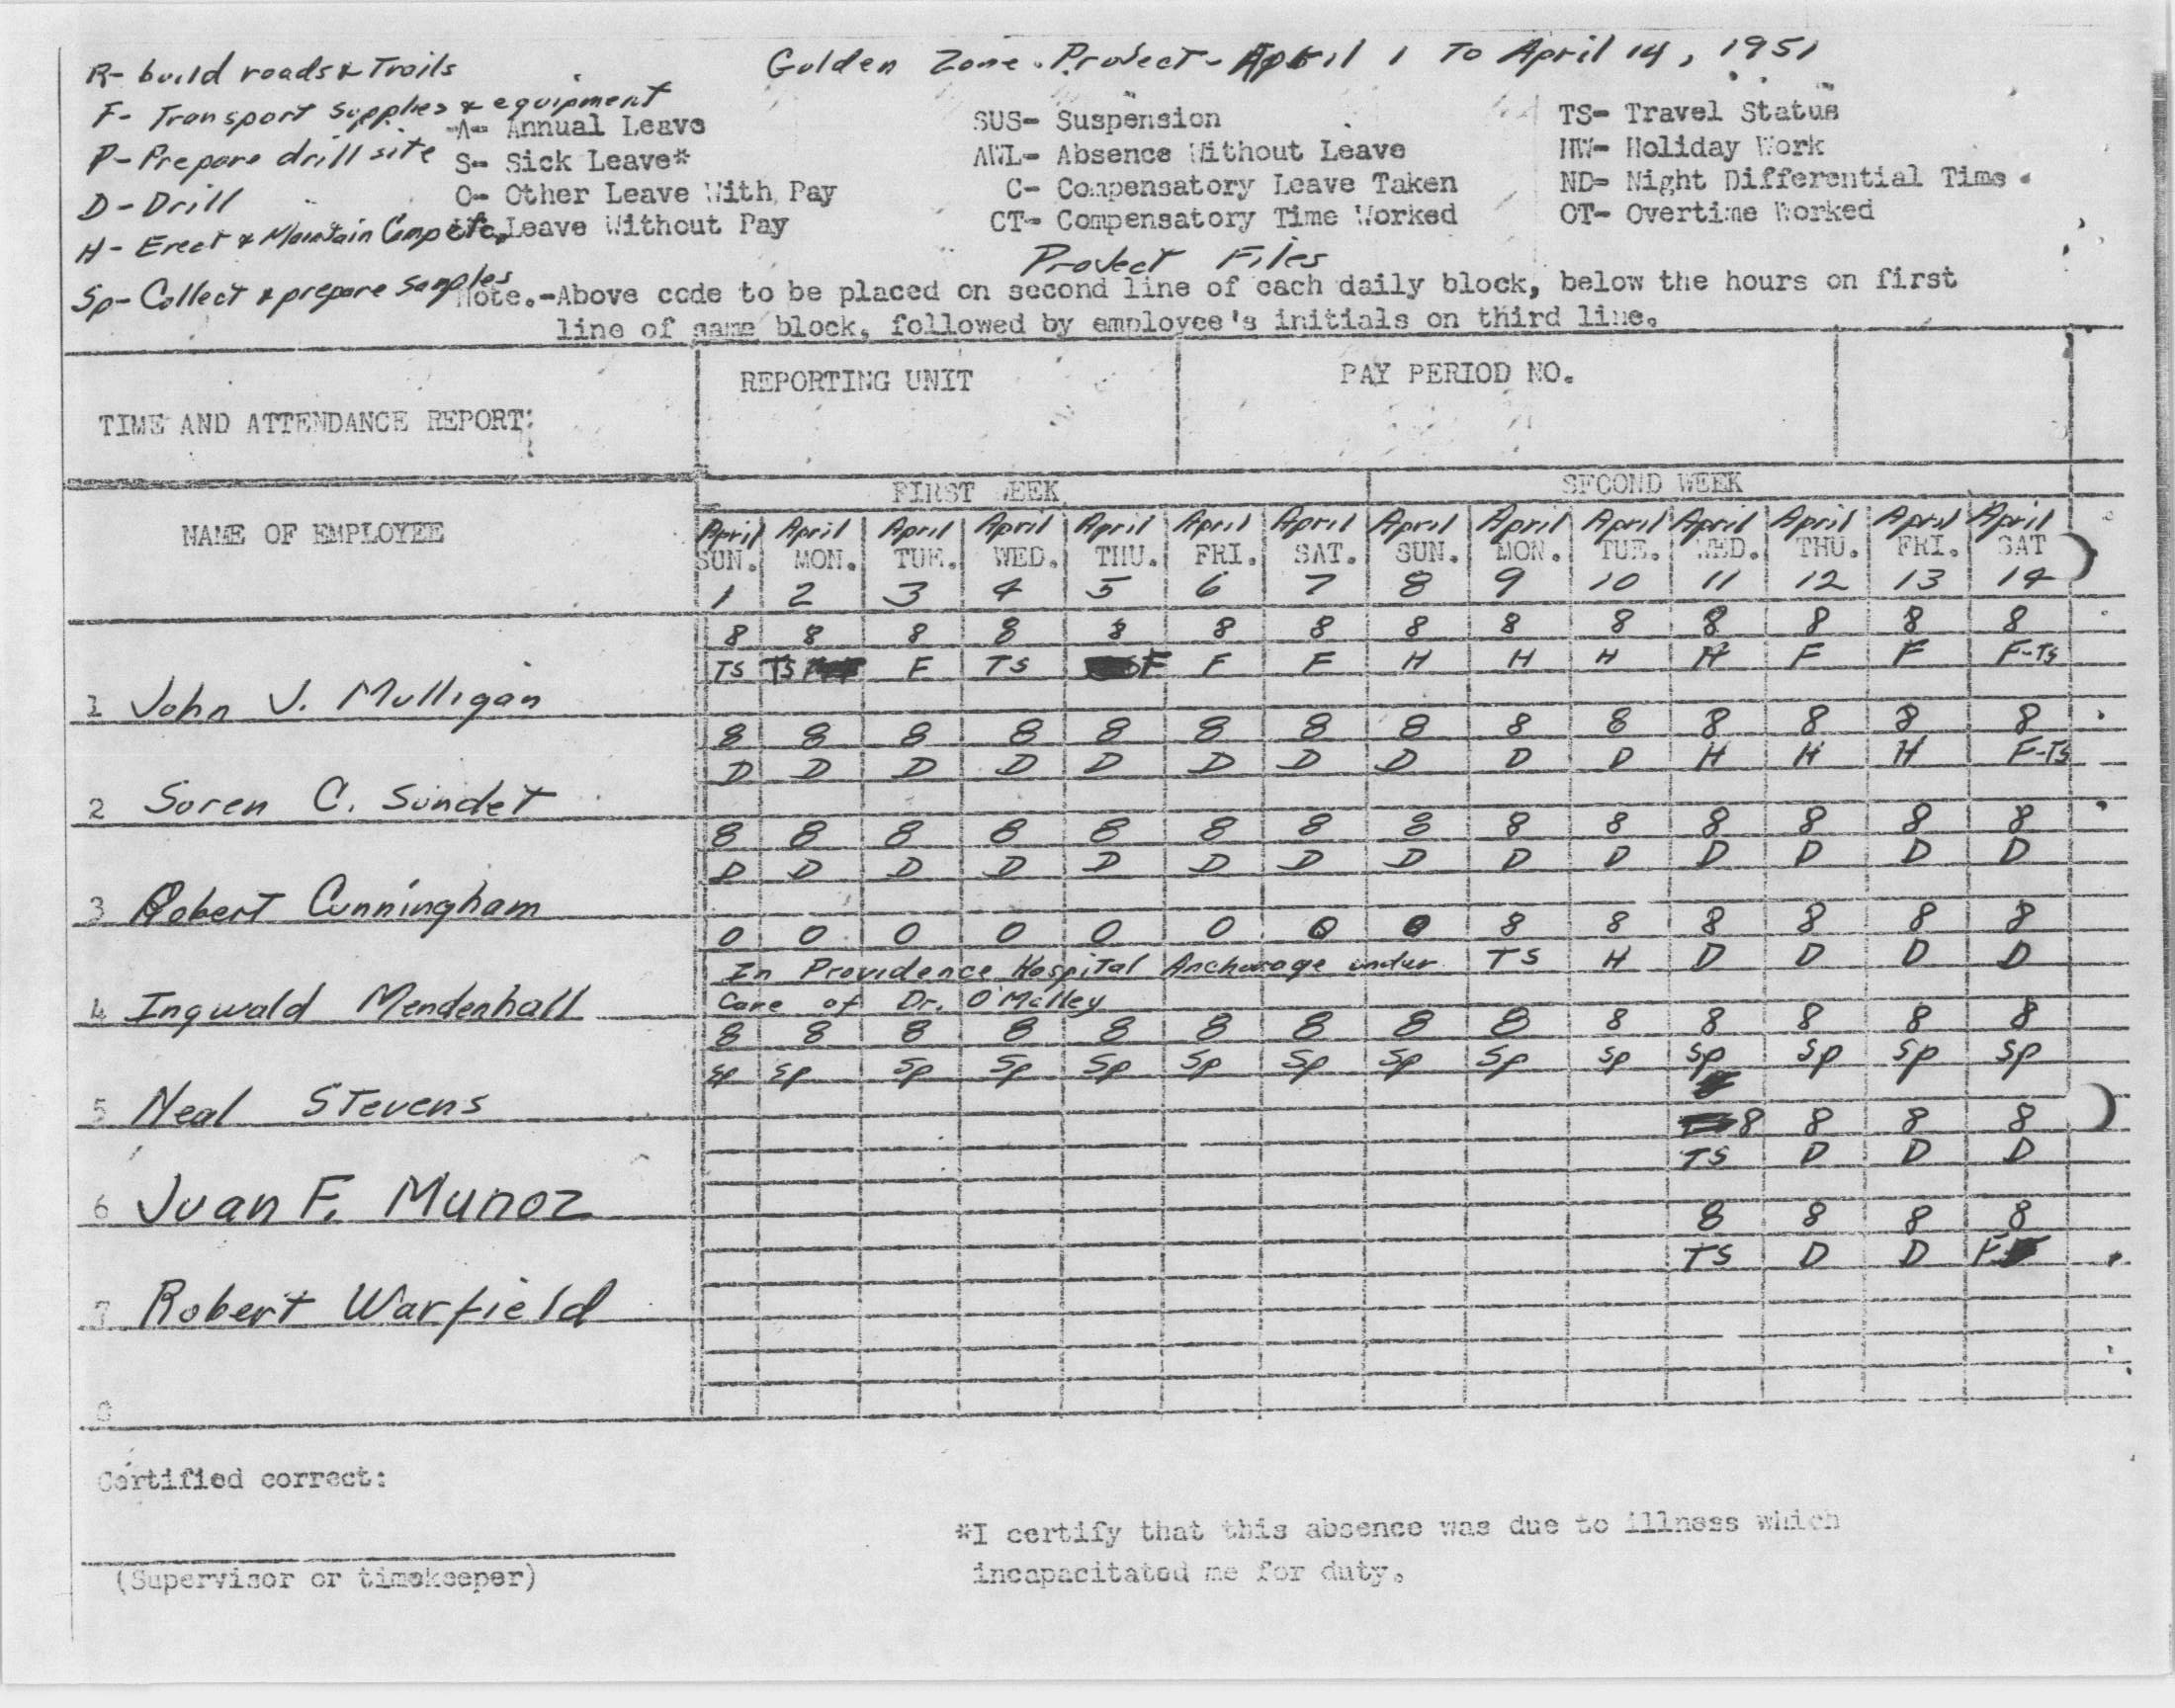 Golden Zone Project - April 1 To April 14, 1951
R- build roads & Trails
F- Transport supplies & equipment
P- Prepare drill site
D- Drill
H- Erect & Maintain Camp etc.
Sp- Collect & prepare samples
A- Annual Leave
S- Sick Leave*
O- Other Leave With Pay
Leave Without Pay
SUS- Suspension
AWL- Absence Without Leave
C- Compensatory Leave Taken
CT- Compensatory Time Worked
TS- Travel Status
HW- Holiday Work
ND- Night Differential Time
OT- Overtime Worked
Project Files
Note.-Above code to be placed on second line of each daily block, below the hours on first
line of same block, followed by employee's initials on third line.
TIME AND ATTENDANCE REPORT:
REPORTING UNIT
PAY PERIOD NO.
FIRST WEEK
SECOND WEEK
NAME OF EMPLOYEE
April April April April April April April April April April April April April April
SUN. MON. TUE. WED. THU. FRI. SAT. SUN. MON. TUE. WED. THU. FRI. SAT
1 2 3 4 5 6 7 8 9 10 11 12 13 14
8 8 8 8 8 8 8 8 8 8 8 8 8 8
TS TS F TS F F F H H H H F F F-TS
1 John J. Mulligan
8 8 8 8 8 8 8 8 8 8 8 8 8 8
D D D D D D D D D D H H H F-TS
2 Soren C. Sundet
8 8 8 8 8 8 8 8 8 8 8 8 8 8
D D D D D D D D D D D D D D
3 Robert Cunningham
0 0 0 0 0 0 0 0 8 8 8 8 8 8
In Providence Hospital Anchorage under TS H D D D D
4 Ingwald Mendenhall Care of Dr. O'Malley
8 8 8 8 8 8 8 8 8 8 8 8 8 8
Sp Sp Sp Sp Sp Sp Sp Sp Sp Sp Sp Sp Sp Sp
5 Neal Stevens
8 8 8 8
TS D D D
6 Juan F. Munoz
8 8 8 8
TS D D F
7 Robert Warfield
8
Certified correct:
(Supervisor or timekeeper)
*I certify that this absence was due to illness which
incapacitated me for duty.